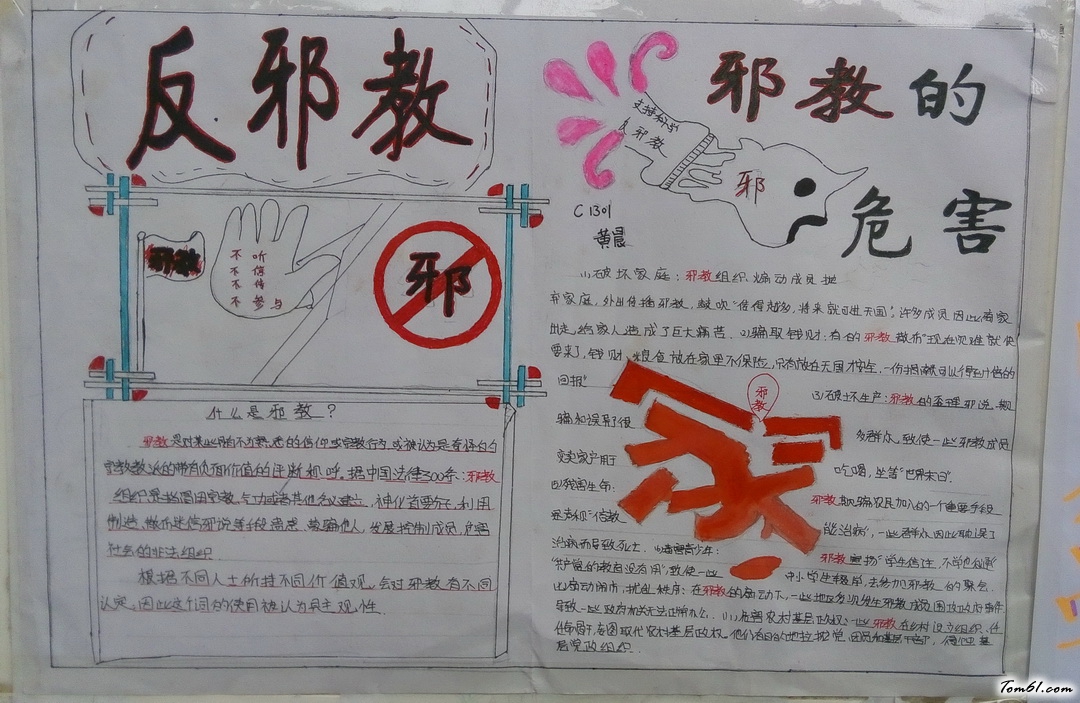 反邪教
邪教
不听
不信
不传
不参与
邪
什么是邪教？
邪教是对某些
宗教教派的带有负面价值的评断和呼。据中国法律300条：邪教
组织是指冒用宗教、气功或者其他名义建立，神化首要分子，利用
制造、散布迷信邪说等手段蛊惑、蒙骗他人，发展控制成员，危害
社会的非法组织
根据不同人士所持不同价值观，会对邪教有不同
认定，因此这个词的使用被认为具主观性.
邪教的
危害
支持科学
反邪教
邪
C1301
黄晨
(1)破坏家庭：邪教组织煽动成员抛
弃家庭，外出传播邪教，鼓吹“信得越多，将来就可进天国”，许多成员因此离家
出走，给家人造成了巨大痛苦. (2)骗取钱财：有的邪教散布“现在灾难就快
要来了，钱财、粮食放在家里不保险，只有放在天国才安全，一份捐献可以得到十倍的
回报”
邪教
(3)破坏生产：邪教的歪理邪说，欺
骗和误导了很
多群众，致使一些邪教成员
变卖家产用于
吃喝，坐等“世界末日”.
(4)残害生命：
邪教欺骗农民加入的一个重要手段
是声称“信教
能治病”，一些群众因此耽误了
治病而导致死亡.
邪教宣扬“学生信主，不学也会”
致使一些
中小学生辍学，去参加邪教
扰乱秩序：在邪教的煽动下，一些地区多次发生邪教成员围攻政府事件
导致一些政府机关无法正常办公.
危害农村基层政权：一些邪教在乡村设立组织、任
企图取代农村基层政权，他们有目的地拉拢党
层党政组织.
Tom61.com